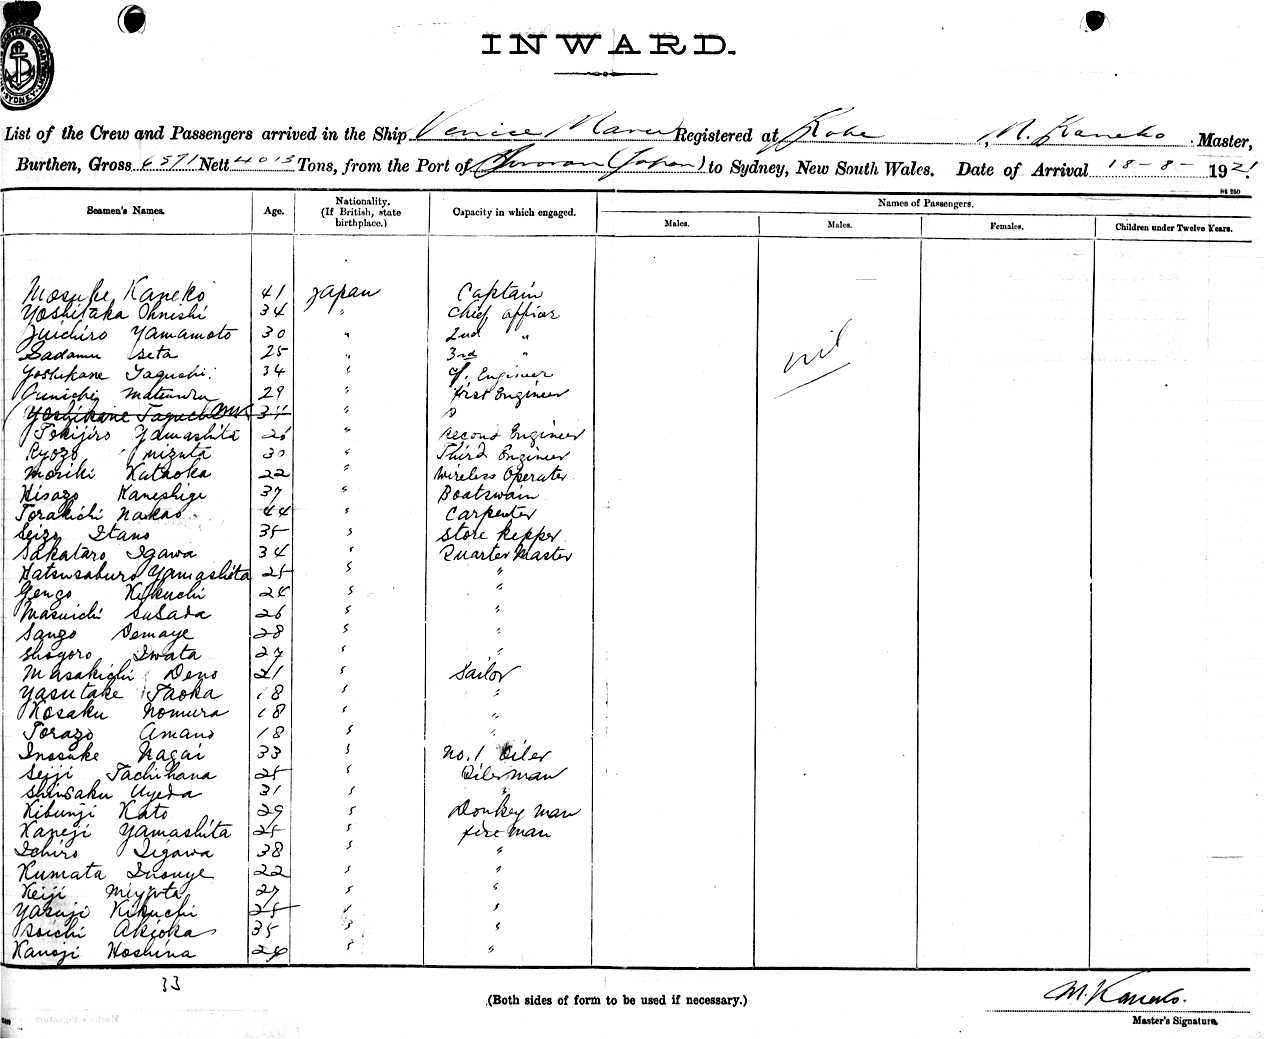 INWARD.
List of the Crew and Passengers arrived in the Ship Venice Maru Registered at Kobe M. Kaneko Master,
Burthen, Gross 6571 Nett 4013 Tons, from the Port of (Japan) to Sydney, New South Wales. Date of Arrival 18-8-1921
Names of Passengers.
Seamen's Names. Age. Nationality. (If British, state birthplace.) Capacity in which engaged. Males. Males. Females. Children under Twelve Years.
Mosuke Kaneko 41 Japan Captain
Yoshitaka Ohnishi 34 " Chief officer
Juichiro Yamamoto 30 " 2nd "
Sadamu Seta 25 " 3rd "
nil
Yoshikane Taguchi 34 " Engineer
Junichi Matsuura 29 " first Engineer
Yoshikane Taguchi 34 "
Tokijiro Yamashita " Second Engineer
Ryozo Mizuta 30 " Third Engineer
Moriki Kataoka 22 " Wireless Operater
Hisazo Kaneshige 37 " Boatswain
Torakichi Nakao 44 " Carpenter
Seizo Itano 35 " Store kepper
Sakataro Igawa 34 " Quarter Master
Hatsusaburo Yamashita 25 " "
Gengo Kikuchi 24 " "
Masuichi Susada 26 " "
Sango Demaye 28 " "
Shogoro Iwata 27 " "
Masakichi Deno 21 " Sailor
Yasutake Taoka 18 " "
Kosaku Nomura 18 " "
Torazo Amano 18 " "
Inosuke Nagai 33 " No. 1 Oiler
Seiji Tachihana 25 " Oilerman
Shinsaku Uyeda 31 " "
Kibunji Kato 29 " Donkey man
Kaneji Yamashita 25 " fire man
Ichiro Iigawa 38 " "
Kumata Inouye 22 " "
Keiji Miyata 27 " "
Yasuji Kikuchi 25 " "
Soichi Akioka 35 " "
Kanoji Hoshina " "
33
(Both sides of form to be used if necessary.)
M. Kaneko.
Master's Signature.